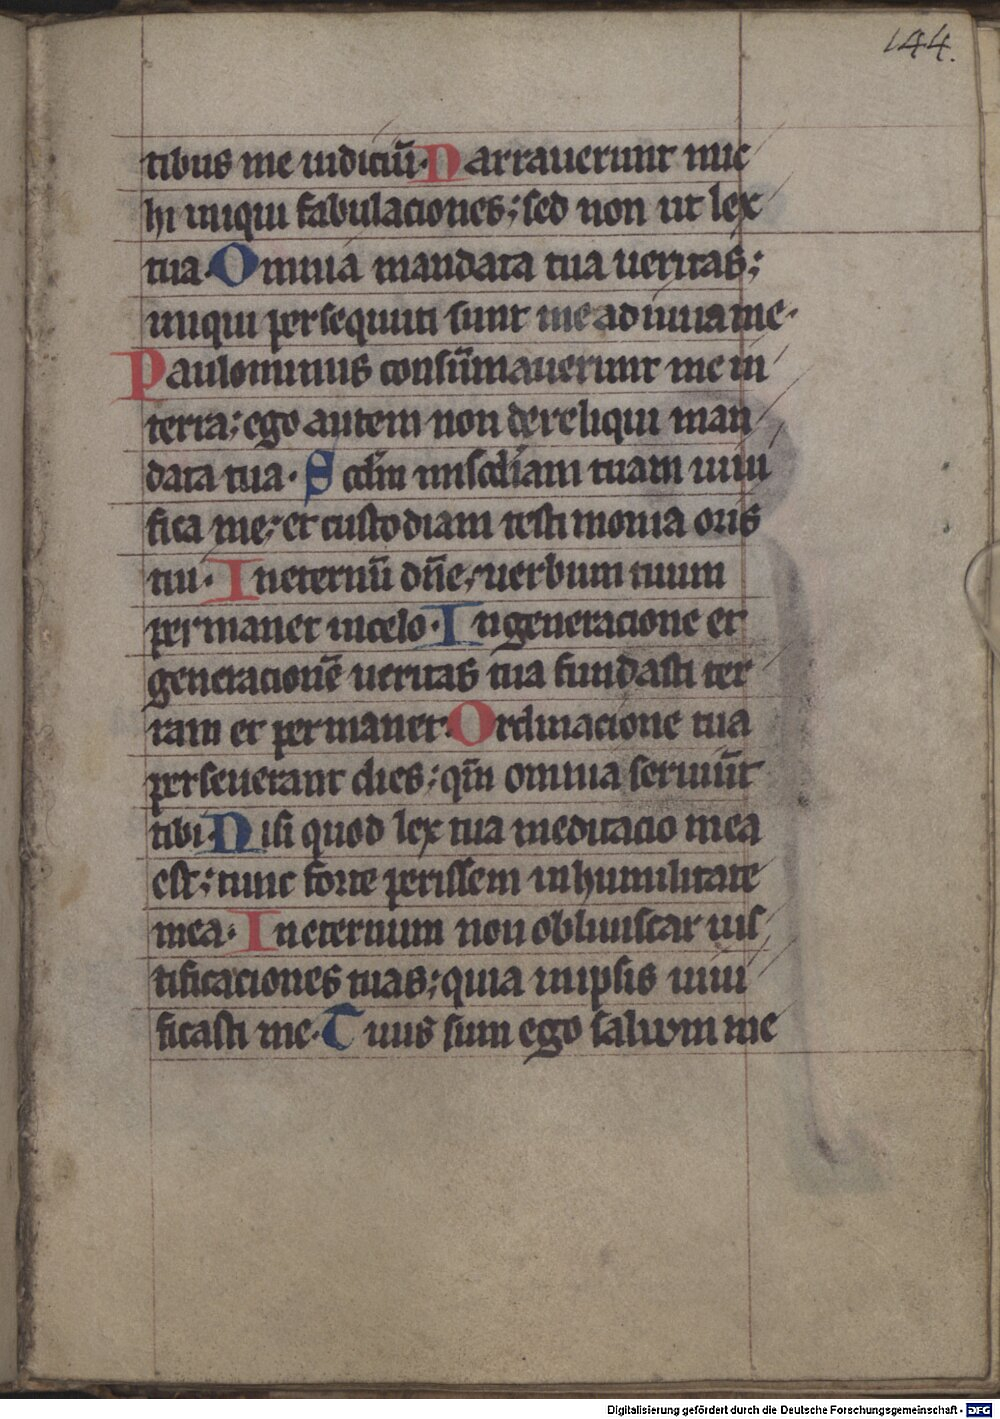 144.
tibus me iudiciū. Narrauerunt mic
hi iniqui fabulaciones; sed non ut lex
tua. Omnia mandata tua ueritas;
iniqui persequuti sunt me adiuua me.
Paulominus consūmauerunt me in
terra; ego autem non dereliqui man
data tua. Scdm̄ miscdiam tuam uiui
fica me; et custodiam testimonia oris
tui. Ineternū dn̄e, uerbum tuum
permanet incelo. Ingeneracione et
generacionē ueritas tua fundasti ter
ram et permanet. Ordinacione tua
perseuerant dies; qm̄ omnia seruiūt
tibi. Nisi quod lex tua meditacio mea
est; tunc forte perissem inhumilitate
mea. Ineternum non obliuiscar ius
tificaciones tuas; quia inipsis uiui
ficasti me. Tuus sum ego saluum me
Digitalisierung gefördert durch die Deutsche Forschungsgemeinschaft - DFG